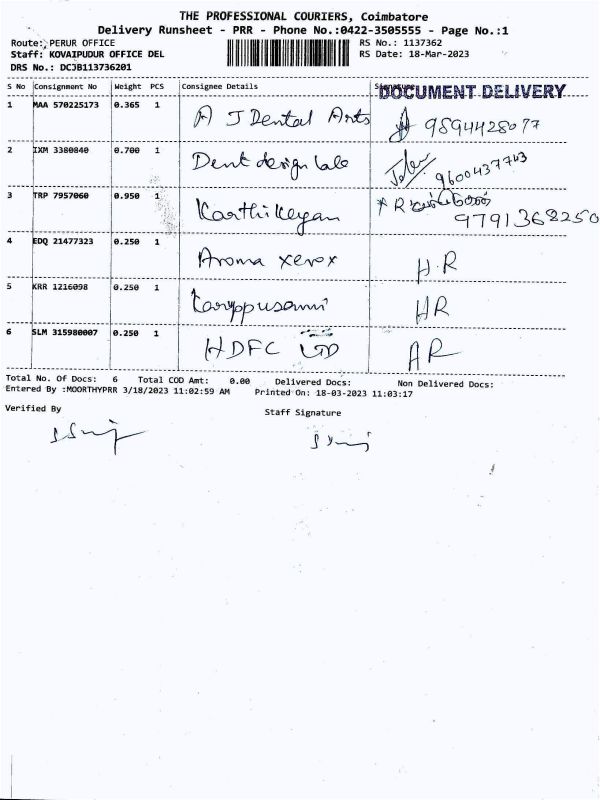 THE PROFESSIONAL COURIERS, Coimbatore
Delivery Runsheet - PRR - Phone No.:0422-3505555 - Page No.:1
Route: PERUR OFFICE RS No.: 1137362
Staff: KOVAIPUDUR OFFICE DEL RS Date: 18-Mar-2023
DRS No.: DCJB113736201
S No Consignment No Weight PCS Consignee Details DOCUMENT DELIVERY
1 MAA 570225173 0.365 1 A J Dental Arts 9894428077
2 IXM 3380840 0.700 1 Dent design lab 9600437703
3 TRP 7957060 0.950 1 Karthikeyan R 9791368250
4 EDQ 21477323 0.250 1 Aroma xerox HR
5 KRR 1216098 0.250 1 Karuppusami HR
6 SLM 315980007 0.250 1 HDFC LTD AR
Total No. Of Docs: 6 Total COD Amt: 0.00 Delivered Docs: Non Delivered Docs:
Entered By :MOORTHYPRR 3/18/2023 11:02:59 AM Printed On: 18-03-2023 11:03:17
Verified By Staff Signature